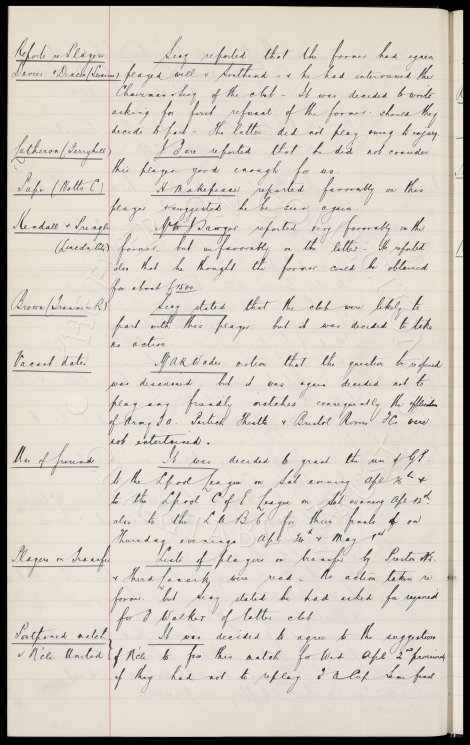 Reports re Players Secy reported that the former had again
Davies & Deacon (Swansea) played well v Scotland - & he had interviewed the
Chairman & Secy of the club - It was decided to write
asking for first refusal of the former should they
decide to part - the latter did not play owing to injury
Latheron (Ferryhill) J Dare reported that he did not consider
this player good enough for us.
Pape (Notts C) H Makepeace reported favorably on this
player & suggested he be seen again
Kendall & Pringle Mr W J Sawyer reported very favorably on the
(Lincoln City) former, but unfavorably on the latter. He reported
also that he thought the former could be obtained
for about £1500
Brown (Tranmere R) Secy stated that the club were likely to
part with this player but it was decided to take
no action
Vacant dates Mr A R Wade motion that the question be reopened
was discussed but it was again decided not to
play any friendly matches consequently the applications
of Army F.A. Partick Thistle & Bristol Rovers FCs were
not entertained.
Use of ground It was decided to grant the use of G.P.
to the Lpool League on Sat evening Apl &
to the Lpool C of E League on Sat evening Apl 12th
also to the L.A.B.C for their finals on
Thursday evenings Apl 24th & May 1st
Players on Transfer Lists of players on transfer by Preston N.E.
& Third Lanark were read - No action taken re
former but Secy stated he had asked for required
for J Walker of latter club
Postponed match It was decided to agree to the suggestion
v N'cle United of N'cle to fix this match for Wed Apl 2nd provided
if they had not to replay F A Cup Semi final